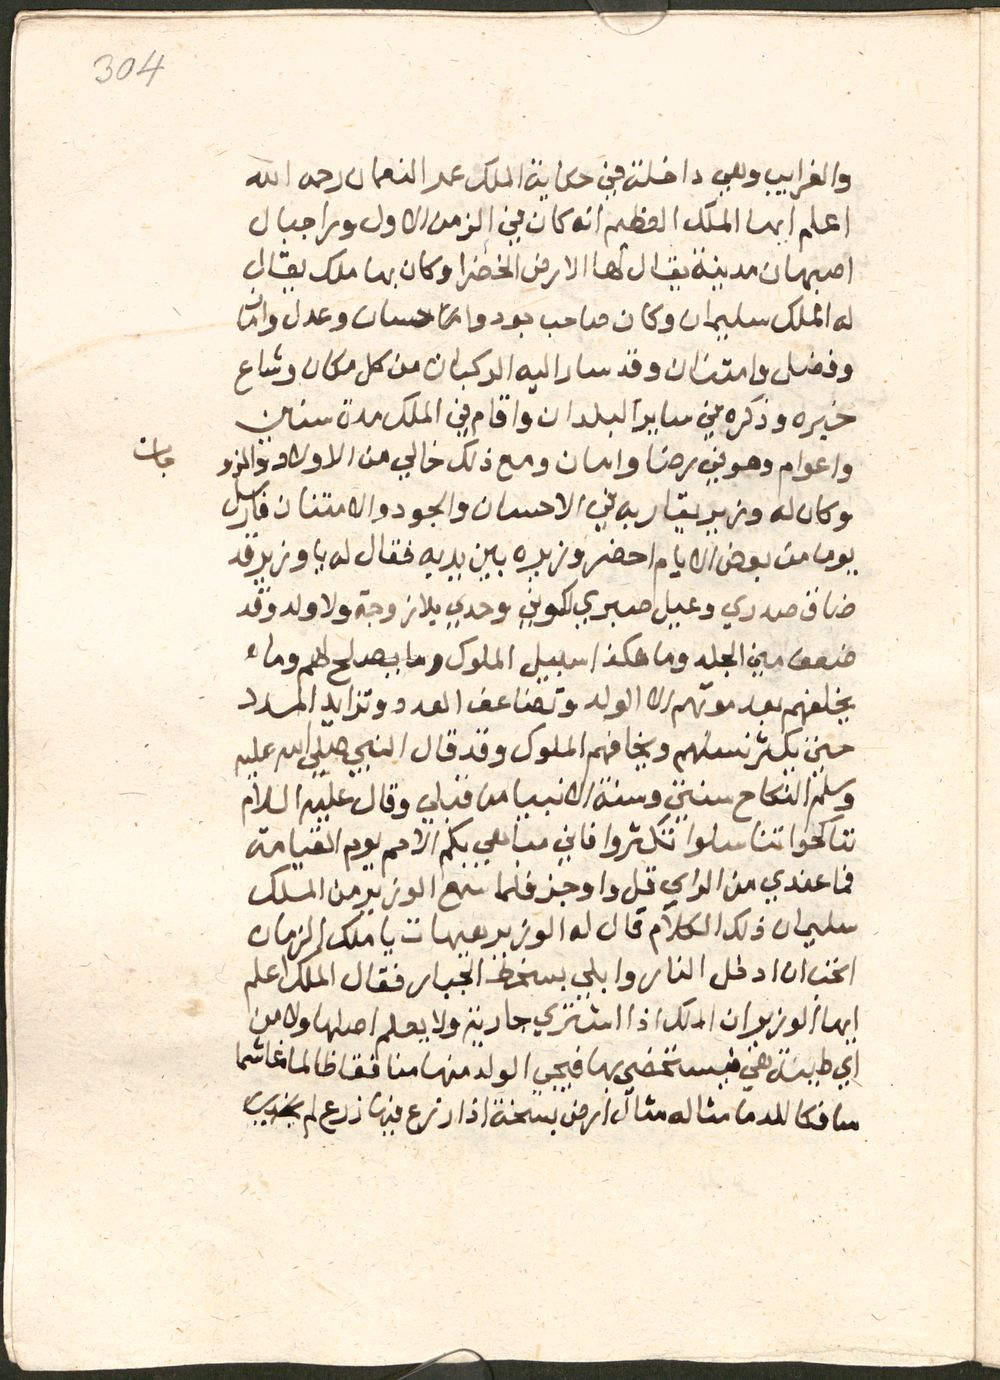 304
والغرايب وهي داخلة في حكاية الملك عمر النعمان رحمه الله
اعلم ايها الملك العظيم انه كان في الزمن الاول ورا جبال
اصبهان مدينة يقال لها الارض الخضرا وكان بها ملك يقال
له الملك سليمان وكان صاحب جود واحسان وعدل وامان
وفضل وامتنان وقد سار اليه الركبان من كل مكان وشاع
خبره وذكره في ساير البلدان واقام في الملك مدة سنين
واعوام وهو في رضا وامان ومع ذلك خالي من الاولاد والزو
جات
وكان له وزير يقاربه في الاحسان والجود والامتنان فارسل
يوما من بعض الايام احضر وزيره بين يديه فقال له يا وزير قد
ضاق صدري وعيل صبري لكوني وحدي بلا زوجة ولا ولد وقد
ضعف مني الجلد وما هكذا سبيل الملوك وما يصلح لهم وما
يخلفهم بعد موتهم الا الولد وتضاعف العدد وتزايد المدد
حتى يكثر نسلهم ويخافهم الملوك وقد قال النبي صلى الله عليه
وسلم النكاح سنتي وسنة الانبيا من قبلي وقال عليه السلام
تناكحوا تناسلوا تكثروا فاني مباهي بكم الامم يوم القيامة
فما عندي من الراي قل واوجز فلما سمع الوزير من الملك
سليمان ذلك الكلام قال له الوزير هيهات يا ملك الزمان
اتحب ان ادخل النار وابلي بسخط الجبار فقال الملك اعلم
ايها الوزير ان الملك اذا اشتري جارية ولا يعلم اصلها ولا من
اي طينة هي فيستحضي بها فيجي الولد منها منافقا ظالما غاشما
سافكا للدما مثاله مثال ارض سبخة اذا زرع فيها زرع لم